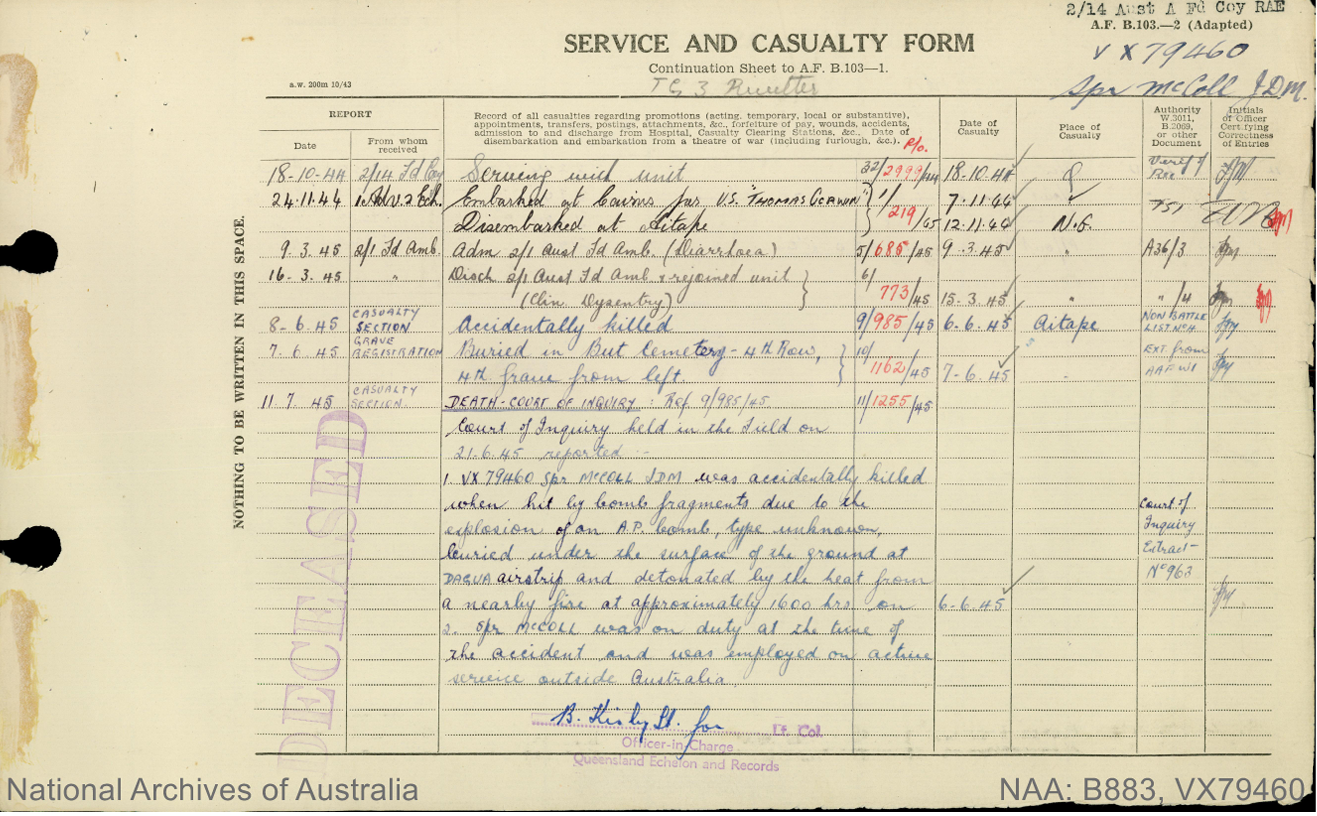 2/14 Aust A Fd Coy RAE
A.F. B.103.—2 (Adapted)
SERVICE AND CASUALTY FORM
VX79460
Continuation Sheet to A.F. B.103—1.
Spr McColl J.D.M.
a.w. 200m 10/43
TG 3
REPORT
Date
From whom received
Record of all casualties regarding promotions (acting, temporary, local or substantive),
appointments, transfers, postings, attachments, &c., forfeiture of pay, wounds, accidents,
admission to and discharge from Hospital, Casualty Clearing Stations, &c., Date of
disembarkation and embarkation from a theatre of war (including furlough, &c.).
P/O.
Date of Casualty
Place of Casualty
Authority W.3011, B.2069, or other Document
Initials of Officer Certifying Correctness of Entries
18-10-44 2/14 Fd Coy Serving with unit 32/2999/44 18-10-44 Q
24.11.44 Embarked at Cairns per U.S. "THOMAS CORWIN" 1/ 7-11-44
Disembarked at Aitape 219/45 12.11.44 N.G.
9. 3. 45 2/1 Fd Amb. Adm 2/1 Aust Fd Amb. (Diarrhoea) 5/685/45 9.3.45 " A36/3
16-3.45 " Disch 2/1 Aust Fd Amb & rejoined unit 6/
(Clin Dysentry) 773/45 15-3.45 " " /4
8-6.45 CASUALTY SECTION Accidentally killed 9/985/45 6-6.45 Aitape NON BATTLE LIST No 4
7.6.45 GRAVE REGISTRATION Buried in But Cemetery - 4th Row, 10/ EXT. from
4th grave from left. 1162/45 7-6.45 AAF W1
11.7.45 CASUALTY SECTION. DEATH-COURT OF INQUIRY: Ref. 9/985/45 11/1255/45
Court of Inquiry held in the Field on
21-6.45 reported :-
1. VX 79460 Spr McCOLL JDM was accidentally killed
when hit by bomb fragments due to the
explosion of an A.P. bomb, type unknown,
buried under the surface of the ground at
DAGUA airstrip and detonated by the heat from
a nearby fire at approximately 1600 hrs on 6-6.45
Court of Inquiry Extract- No 963
2. Spr McCOLL was on duty at the time of
the accident and was employed on active
service outside Australia.
B. Kirby Lt. for Lt. Col.
Officer-in-Charge
Queensland Echelon and Records
NOTHING TO BE WRITTEN IN THIS SPACE.
DECEASED
National Archives of Australia
NAA: B883, VX79460